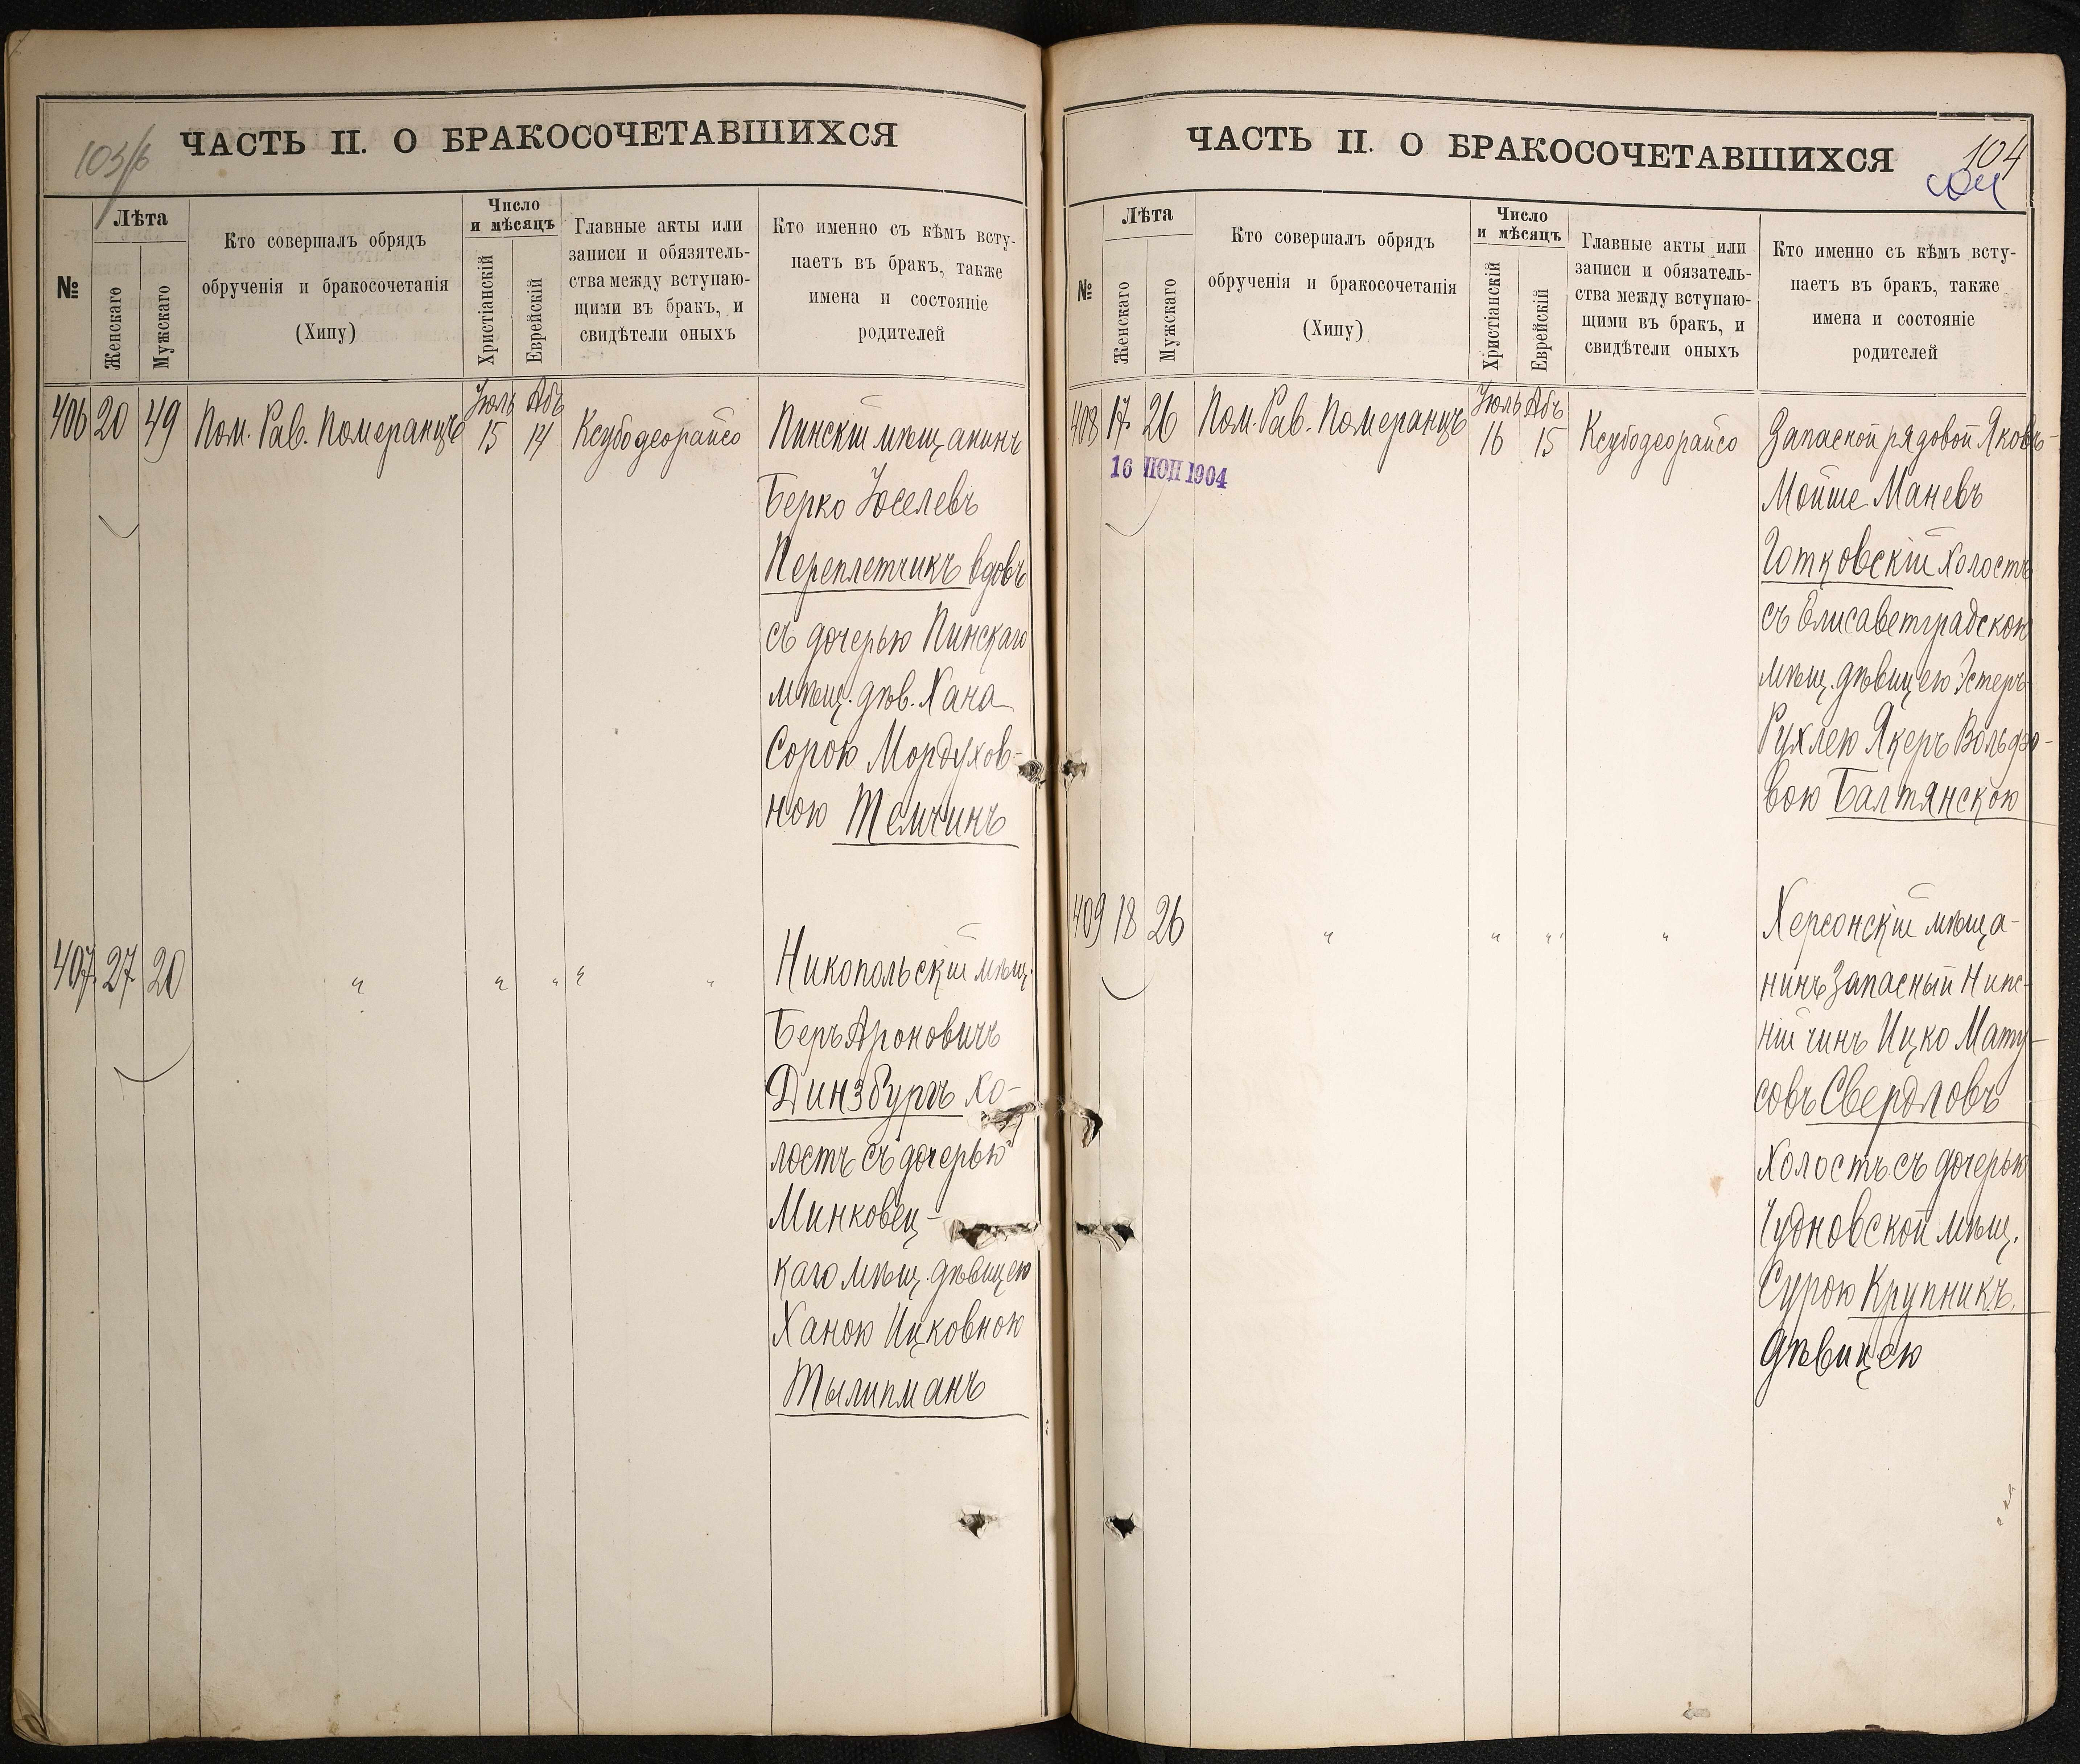 103/б
ЧАСТЬ II. О БРАКОСОЧЕТАВШИХСЯ
№
Лѣта
Женскаго
Мужскаго
Кто совершалъ обрядъ
обрученія и бракосочетанія
(Хипу)
Число
и мѣсяцъ
Христіанскій
Еврейскій
Главные акты или
записи и обязятель-
ства между вступаю-
щими въ бракъ, и
свидѣтели оныхъ
Кто именно съ кѣмъ всту-
паетъ въ бракъ, также
имена и состояніе
родителей
Іюль Абъ
406 20 49 Пом. Рав. Померанцъ 15 14 Ксубодеорайсо Пинскій мѣщанинъ
Берко Іоселевъ
Переплетчикъ вдовъ
съ дочерью Пинскаго
мѣщ. дѣв. Хана
Сорою Мордухов-
ною Темчинъ
407 27 20 " " " " " Никопольскій мѣщ.
Беръ Ароновичъ
Динзбургъ хо-
лостъ съ дочерью
Минковец-
каго мѣщ. дѣвицею
Ханою Ицковною
Тылипманъ
ЧАСТЬ II. О БРАКОСОЧЕТАВШИХСЯ
104
№
Лѣта
Женскаго
Мужскаго
Кто совершалъ обрядъ
обрученія и бракосочетанія
(Хипу)
Число
и мѣсяцъ
Христіанскій
Еврейскій
Главные акты или
записи и обязатель-
ства между вступаю-
щими въ бракъ, и
свидѣтели оныхъ
Кто именно съ кѣмъ всту-
паетъ въ бракъ, также
имена и состояніе
родителей
Іюль Абъ
408 17 26 Пом. Рав. Померанцъ 16 15 Ксубодеорайсо Запасной рядовой Яковъ-
16 1904
Мойше Маневъ
Готковскій холостъ
съ Елисаветградскою
мѣщ. дѣвицею Эстеръ-
Рухлею Якеръ Вольфо-
вою Балтянскою
409 18 26 " " " " Херсонскій мѣща-
нинъ Запасный Ниж-
ній чинъ Ицко Мату-
совъ Свердловъ
холостъ съ дочерью
Чудновской мѣщ.
Сурою Крупникъ
дѣвицею